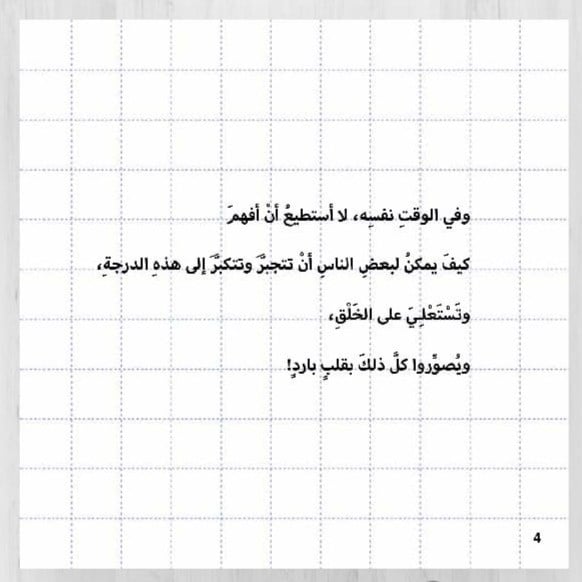 وفي الوقتِ نفسِه، لا أستطيعُ أنْ أفهمَ
كيفَ يمكنُ لبعضِ الناسِ أنْ تتجبَّرَ وتتكبَّرَ إلى هذهِ الدرجةِ،
وتَسْتَعْلِيَ على الخَلْقِ،
ويُصوِّروا كلَّ ذلكَ بقلبٍ باردٍ!
4